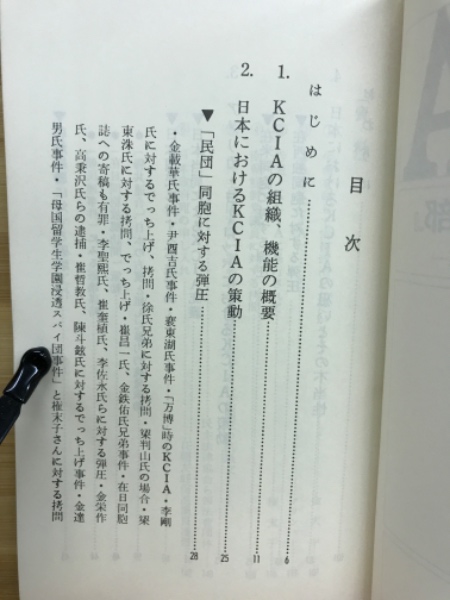 目次
はじめに……6
1. KCIAの組織、機能の概要……11
2. 日本におけるKCIAの策動……25
▼「民団」同胞に対する弾圧……28
・金載華氏事件・尹酉吉氏事件・裵東湖氏事件・「万博」時のKCIA・李剛
氏に対するでっち上げ、拷問・徐氏兄弟に対する拷問・梁判山氏の場合・梁
東洙氏に対する拷問、でっち上げ・崔昌一氏、金鉄佑氏兄弟事件・在日同胞
誌への寄稿も有罪・李聖熙氏、崔奎植氏、李佐永氏らに対する弾圧・金栄作
氏、高秉沢氏らの逮捕・崔哲教氏、陳斗鉉氏に対するでっち上げ事件・金達
男氏事件・「母国留学生学園浸透スパイ団事件」と権末子さんに対する拷問